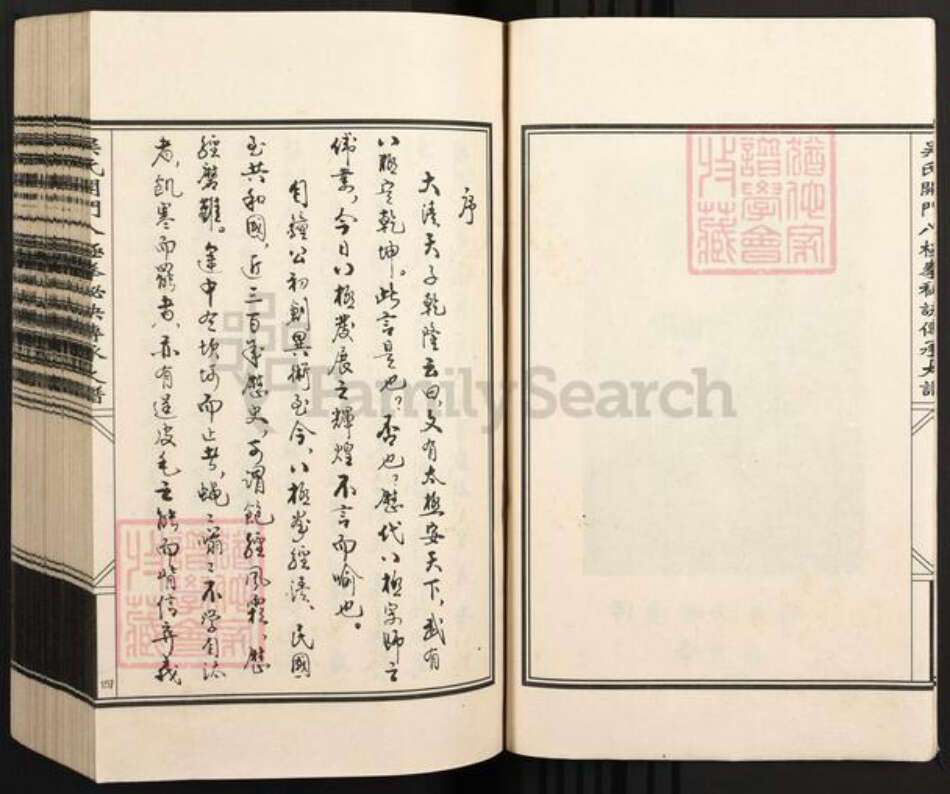 吳氏開門八極拳秘訣傳承大譜
猶他家譜學會收藏
序
大清天子乾隆云曰,文有太極安天下,武有
八極定乾坤。此言是也?否也?歷代八極宗師之
偉業,今日八極發展之輝煌不言而喻也。
自鐘公初創異術至今,八極拳經清、民國
至共和國,近三百年歷史,可謂飽經風霜,歷
經磨難。途中冬坎坷而止者,蠅蠅嘯嘯不學自
者,飢寒而罷者,亦有逞皮毛之能而背信棄義
吳氏開門八極拳秘訣傳承大譜
猶他家譜學會收藏
FamilySearch